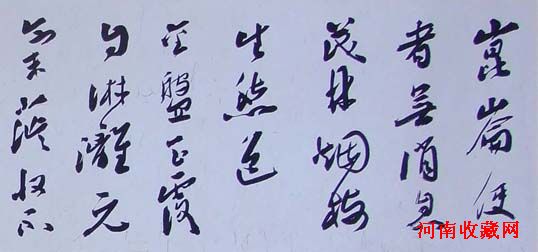 崑崙使
者無消息
茂陵烟樹
生愁色
金盤玉露
自淋灕元
氣茫茫收不
河南收藏网